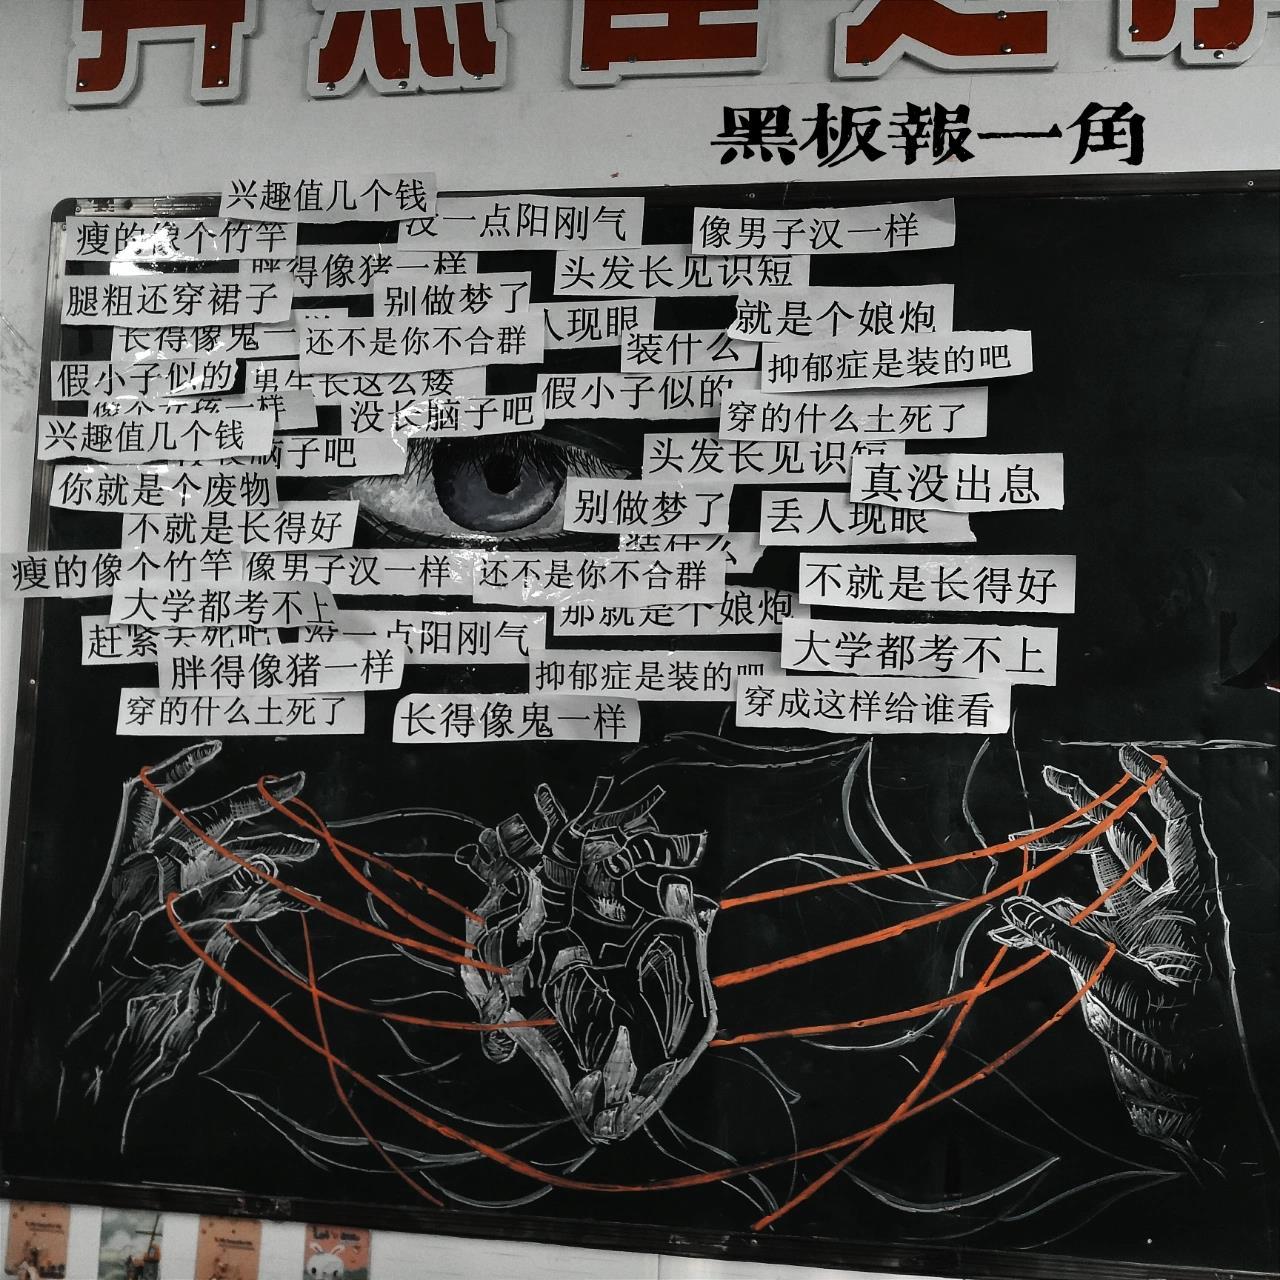 黑板報一角
兴趣值几个钱
没一点阳刚气
像男子汉一样
瘦的像个竹竿
胖得像猪一样
头发长见识短
腿粗还穿裙子
别做梦了
人现眼
就是个娘炮
长得像鬼一样
还不是你不合群
装什么
抑郁症是装的吧
假小子似的
男生长这么矮
假小子似的
像个女孩一样
没长脑子吧
穿的什么土死了
兴趣值几个钱
脑子吧
头发长见识短
真没出息
你就是个废物
别做梦了
丢人现眼
不就是长得好
装什么
瘦的像个竹竿
像男子汉一样
还不是你不合群
不就是长得好
大学都考不上
那就是个娘炮
赶紧去死吧
没一点阳刚气
大学都考不上
胖得像猪一样
抑郁症是装的吧
穿成这样给谁看
穿的什么土死了
长得像鬼一样